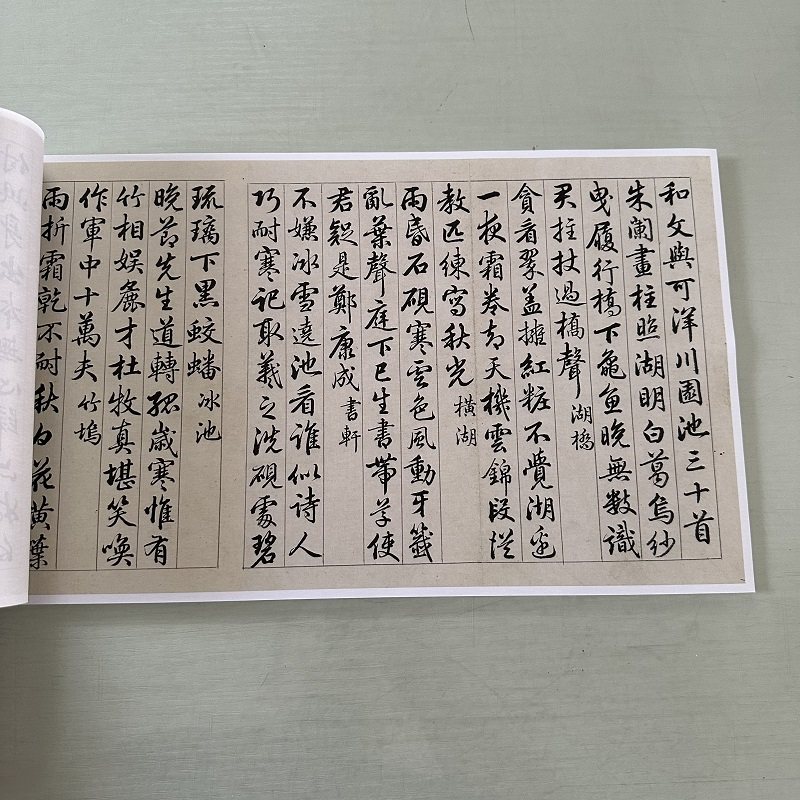 和文與可洋川園池三十首
朱闌畫柱照湖明白葛烏紗
曳履行橋下龜魚晚無數識
君拄杖過橋聲 湖橋
貪看翠蓋擁紅粧不覺湖邊
一夜霜卷却天機雲錦段從
教匹練寫秋光 橫湖
雨昏石硯寒雲色風動牙籤
亂葉聲庭下已生書帶草使
君疑是鄭康成 書軒
不嫌冰雪遶池看誰似詩人
巧耐寒記取羲之洗硯處碧
琉璃下黑蛟蟠 冰池
晚節先生道轉孤歲寒惟有
竹相娛麄才杜牧真堪笑喚
作軍中十萬夫 竹塢
雨折霜乾不耐秋白花黃葉